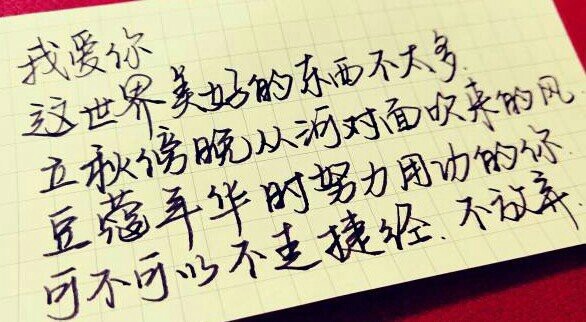 我爱你
这世界美好的东西不太多.
立秋傍晚从河对面吹来的风
豆蔻年华时努力用功的你.
可不可以不走捷径.不放弃.